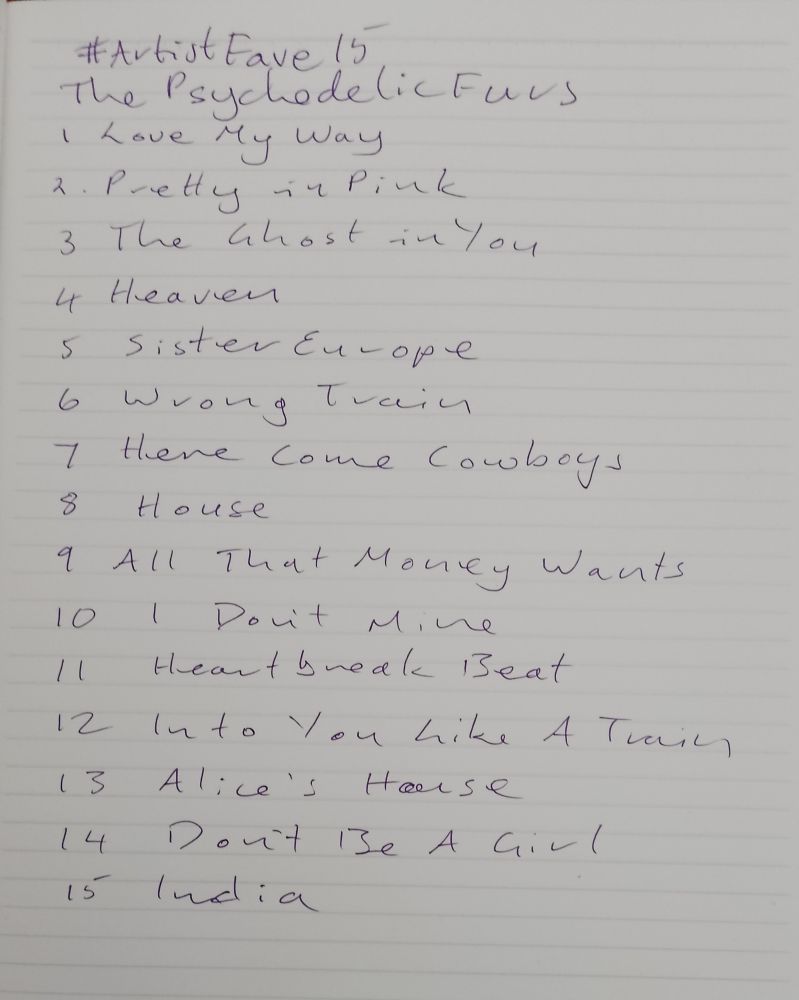 #ArtistFave15
The Psychodelic Furs
1 Love My Way
2. Pretty in Pink
3 The Ghost in You
4 Heaven
5 Sister Europe
6 Wrong Train
7 Here Come Cowboys
8 House
9 All That Money Wants
10 I Don't Mine
11 Heartbreak Beat
12 Into You Like A Train
13 Alice's House
14 Don't Be A Girl
15 India